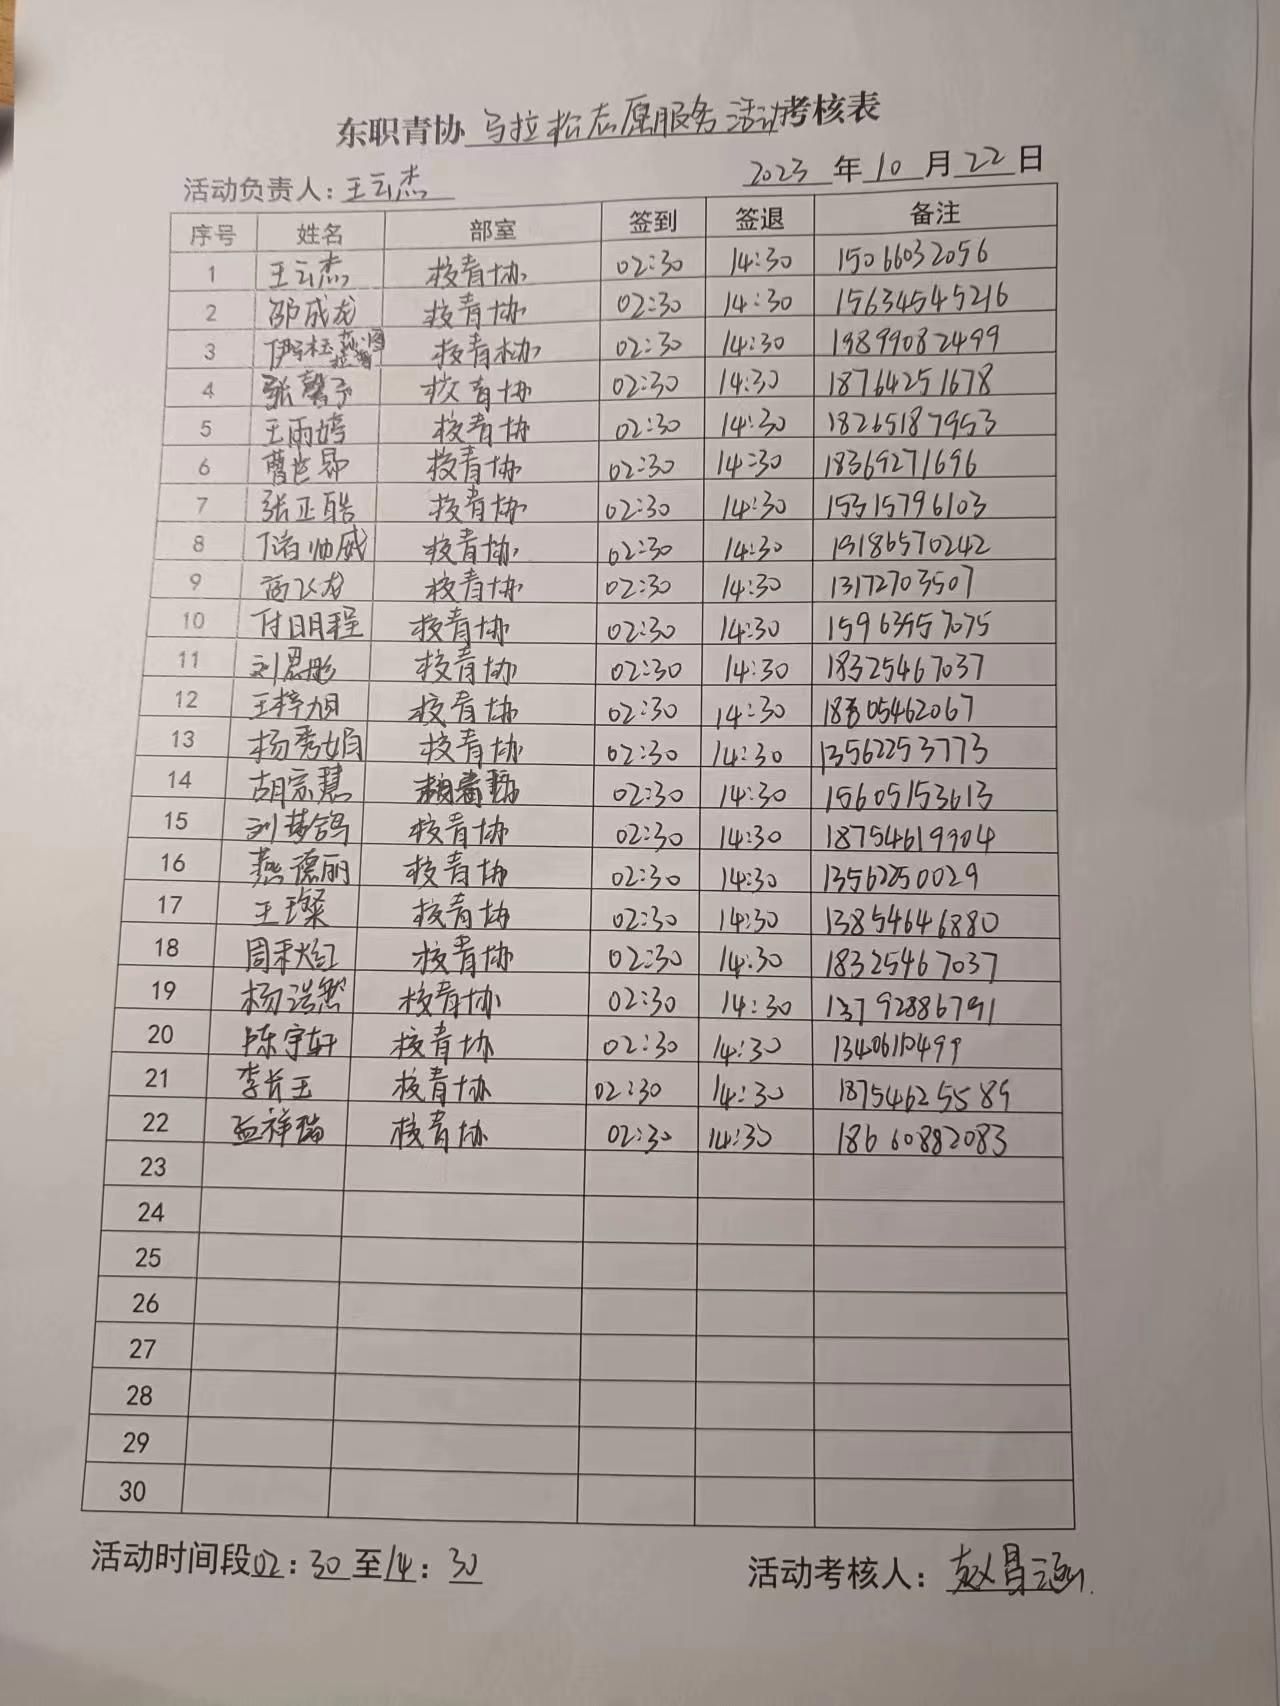 东职青协 马拉松志愿服务活动考核表
活动负责人：王云杰 2023 年 10 月 22 日
序号 姓名 部室 签到 签退 备注
1 王云杰 校青协 02:30 14:30 15066032056
2 邵成龙 校青协 02:30 14:30 15634545216
3 校青协 02:30 14:30 19899082499
4 张馨予 校青协 02:30 14:30 18764251678
5 王雨婷 校青协 02:30 14:30 18265187953
6 曹世昂 校青协 02:30 14:30 18369271696
7 张正皓 校青协 02:30 14:30 15315796103
8 校青协 02:30 14:30 19186570242
9 高飞龙 校青协 02:30 14:30 13172703507
10 付明程 校青协 02:30 14:30 15963557075
11 刘恩彤 校青协 02:30 14:30 18325467037
12 王梓旭 校青协 02:30 14:30
13 杨秀娟 校青协 02:30 14:30 13562253773
14 胡宗慧 02:30 14:30 15605153613
15 刘梦鸽 校青协 02:30 14:30 18754619904
16 燕德丽 校青协 02:30 14:30 13562250029
17 王璨 校青协 02:30 14:30 13854646880
18 周秋红 校青协 02:30 14:30 18325467037
19 杨浩然 校青协 02:30 14:30 13792886791
20 陈宇轩 校青协 02:30 14:30
21 李长玉 校青协 02:30 14:30 18754625589
22 孟祥瑞 校青协 02:30 14:30 18660882083
23
24
25
26
27
28
29
30
活动时间段02：30至14：30 活动考核人：赵昌涵